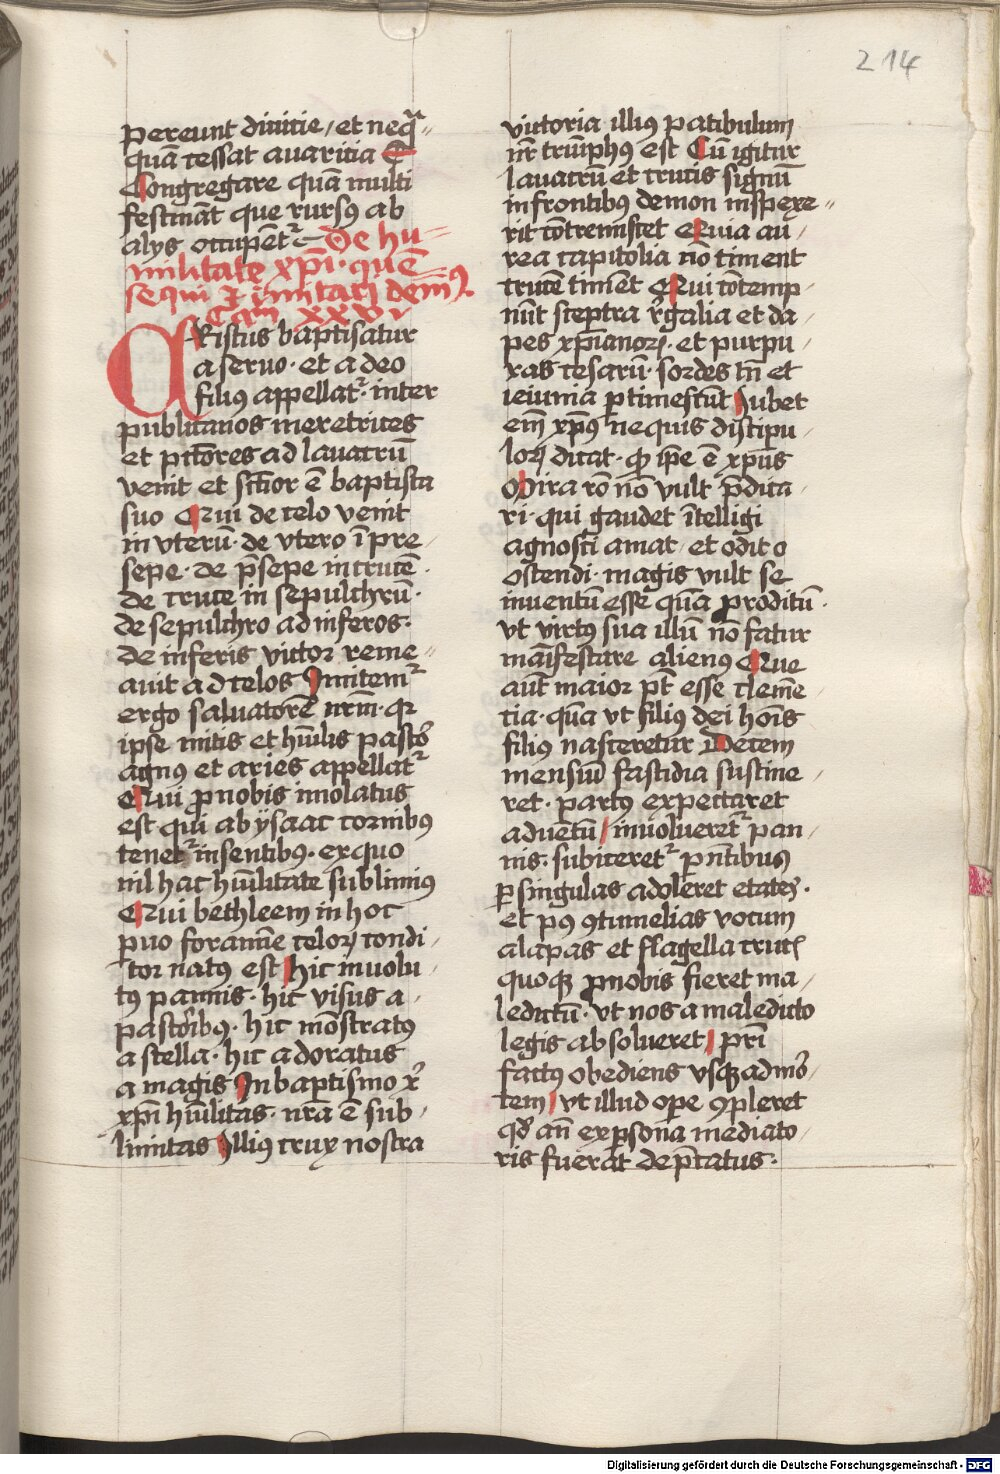 214
pereunt diuitie / et neq̃
quã cessat auaritia C
Congregare quã multi
festinãt que rursꝰ ab
alys occupẽtᷣ De hu
militate xp̃i · quẽ
sequi et ymitari debemꝰ
Cam xxvi
CRistus baptisatur
a seruo · et a deo
filiꝰ appellatᷣ · inter
publicanos meretrices
et pctõres ad lauacrũ
venit et sctĩor ẽ baptista
suo Qui de celo venit
in vterũ · de vtero ĩ pre
sepe · de p̃sepe in crucẽ ·
de cruce in sepulchrũ ·
de sepulchro ad inferos ·
de inferis victor reme
auit ad celos Imitemᷣ
ergo saluatorẽ nr̃m · qꝛ
ipse mitis et hũilis pastõ
agnꝰ et aries appellatᷣ
Qui ꝓ nobis imolatus
est qui ab ysaac cornibꝰ
tenetᷣ in sentibꝰ · ex quo
nil hac hũilitate sublimiꝰ
Qui bethleem in hoc
ꝑuo foramĩe celoꝝ condi
tor natꝰ est hic inuolu
tꝰ pannis · hic visus a
pastõibꝰ · hic mõstratꝰ
a stella · hic adoratus
a magis In baptismo
xp̃i hũilitas · nr̃a ẽ sub
limitas Illiꝰ crux nostra
victoria illiꝰ patibulum
nr̃ triũphꝰ est Cũ igitur
lauacrũ et crucis signũ
in frontibꝰ demon inspexe
rit cõtremiscet Quia au
rea capitolia nõ timent
crucẽ timẽt Qui cõtemp
nũt sceptra r̃galia et da
pes xp̃ianoꝝ · et purpu
ras cesarũ · sordes tñ et
ieiunia ꝑtimescũt Iubet
em̃ xp̃us ne quis discipu
loꝝ dicat · ꝙ ip̃e ẽ xp̃us
Mira rõ nõ vult p̃dica
ri · qui gaudet ĩtelligi
agnosci amat · et odit
ostendi · magis vult se
inuentũ esse quã proditũ ·
vt virtꝰ sua illũ nõ fatur
mãifestare alienꝰ Que
aut̃ maior pt̃ esse clemẽ
tia · quã vt filiꝰ dei hoĩs
filiꝰ nasceretur Decem
mensiũ fastidia sustine
ret · partꝰ expectaret
aduentũ / inuolueretᷣ pan
nis · subiceretᷣ pñtibus
ꝑ singulas adoleret etates ·
et pꝰ ꝯtumelias vocum
alapas et flagella crucis
quoqꝫ ꝓ nobis fieret ma
ledictũ · vt nos a maledicto
legis absolueret / pr̃i
factꝰ obediens vsqꝫ ad mõ
tem / vt illud ope ꝯpleret
qđ añ ex ꝑsona mediato
ris fuerat dep̃catus ·
Digitalisierung gefördert durch die Deutsche Forschungsgemeinschaft - DFG